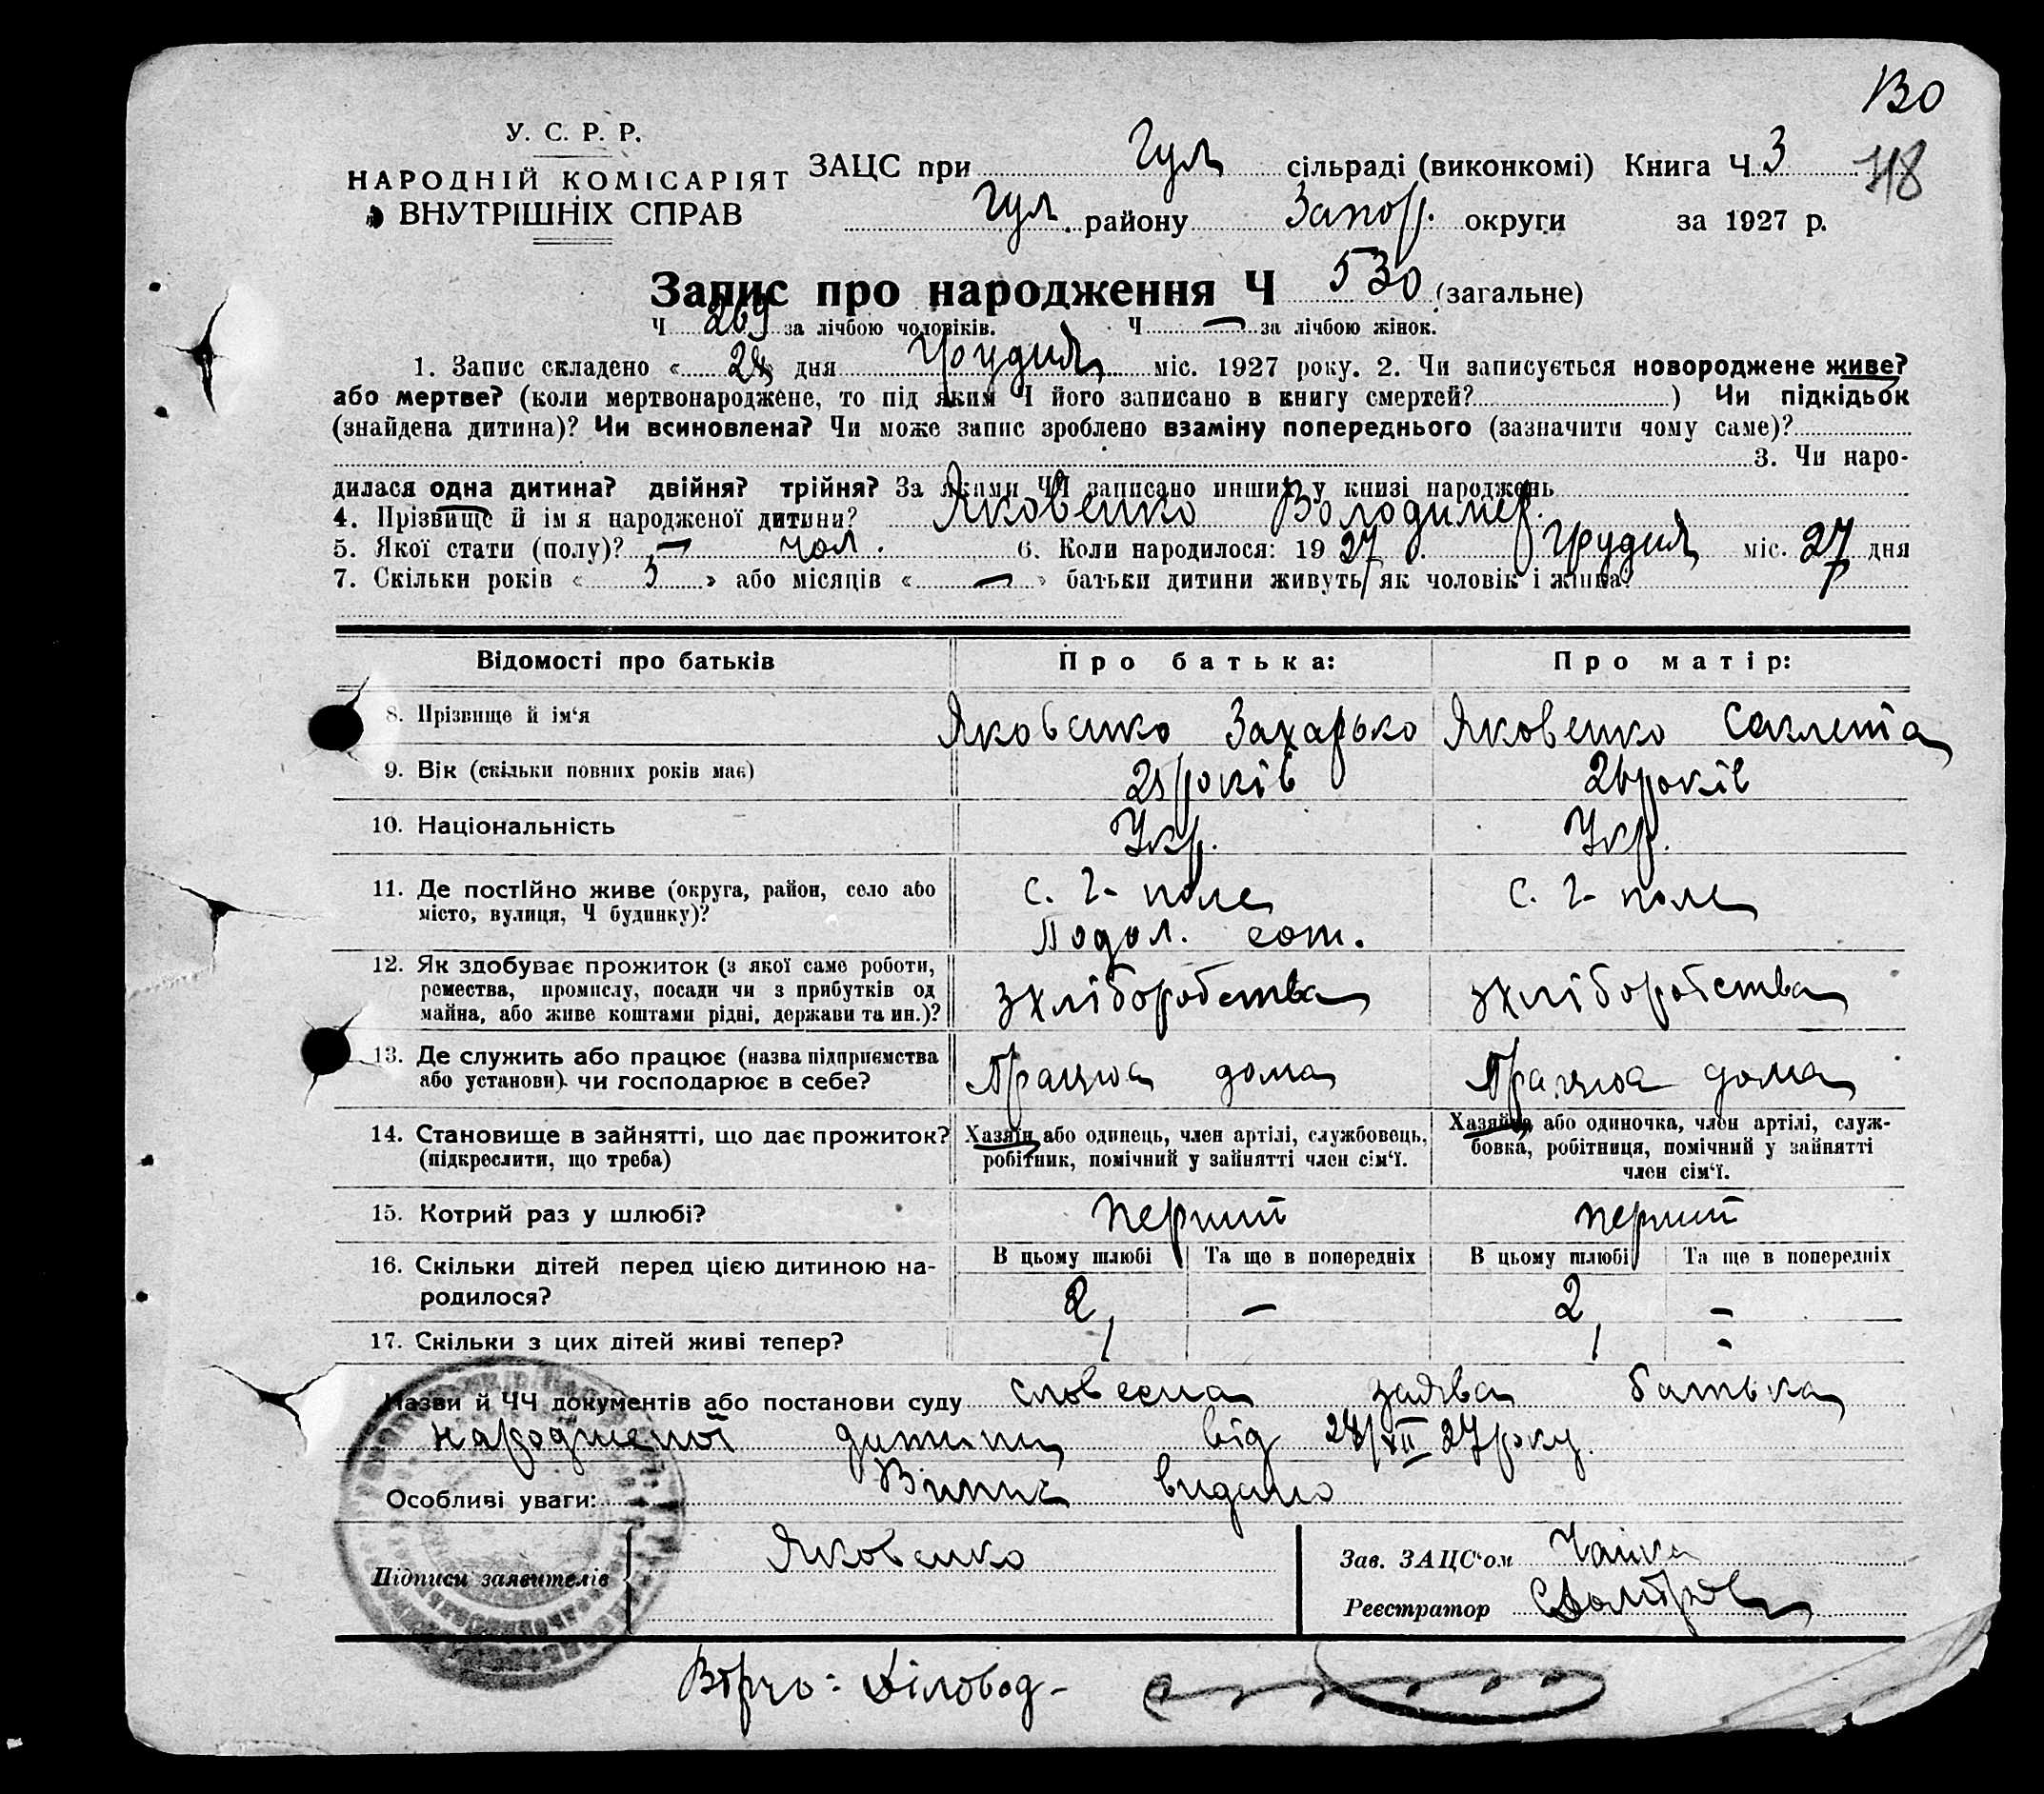 130
У. С. Р. Р.
НАРОДНІЙ КОМІСАРІЯТ
ВНУТРІШНІХ СПРАВ
ЗАЦС при Гул сільраді (виконкомі) Книга Ч 3 118
Гул. району Запор. округи за 1927 р.
Запис про народження Ч 530 (загальне)
Ч 269 за лічбою чоловіків. Ч — за лічбою жінок.
1. Запис складено « 28 » дня Грудня міс. 1927 року. 2. Чи записується новороджене живе?
або мертве? (коли мертвонароджене, то під яким Ч його записано в книгу смертей? ) Чи підкідьок
(знайдена дитина)? Чи всиновлена? Чи може запис зроблено взаміну попереднього (зазначити чому саме)?
3. Чи наро-
дилася одна дитина? двійня? трійня? За якими ЧЧ записано инших у книзі народжень
4. Прізвище й ім я народженої дитини? Яковенко Володимер.
5. Якої стати (полу)? — чол. 6. Коли народилося: 19 27 р. Грудня міс. 27 дня
7. Скільки років « 5 » або місяців « — » батьки дитини живуть як чоловік і жінка?
Відомості про батьків Про батька: Про матір:
8. Прізвище й ім'я Яковенко Захарько Яковенко Секлета
9. Вік (скільки повних років має) років 26 років
10. Національність Укр. Укр.
11. Де постійно живе (округа, район, село або с. Г- поле с. Г- поле
місто, вулиця, Ч будинку)? Подол. сот.
12. Як здобуває прожиток (з якої саме роботи,
ремества, промислу, посади чи з прибутків од зхліборобства зхліборобства
майна, або живе коштами рідні, держави та ин.)?
13. Де служить або працює (назва підприємства
або установи) чи господарює в себе? Працюа дома Працюа дома
14. Становище в зайнятті, що дає прожиток? Хазяїн або одинець, член артілі, службовець, Хазяйка або одиночка, член артілі, служ-
(підкреслити, що треба) робітник, помічний у зайнятті член сім'ї. бовка, робітниця, помічний у зайнятті
член сім'ї.
15. Котрий раз у шлюбі? перший перший
16. Скільки дітей перед цією дитиною на- В цьому шлюбі Та ще в попередніх В цьому шлюбі Та ще в попередніх
родилося? 2 — 2 —
17. Скільки з цих дітей живі тепер? 1 1 -
Назви й ЧЧ документів або постанови суду словесна заява батька
народженої дитини від 28/XII 27 року.
Особливі уваги: Випис видано
Підписи заявителів Яковенко Зав. ЗАЦС'ом
Реєстратор
Вірно: Діловод-